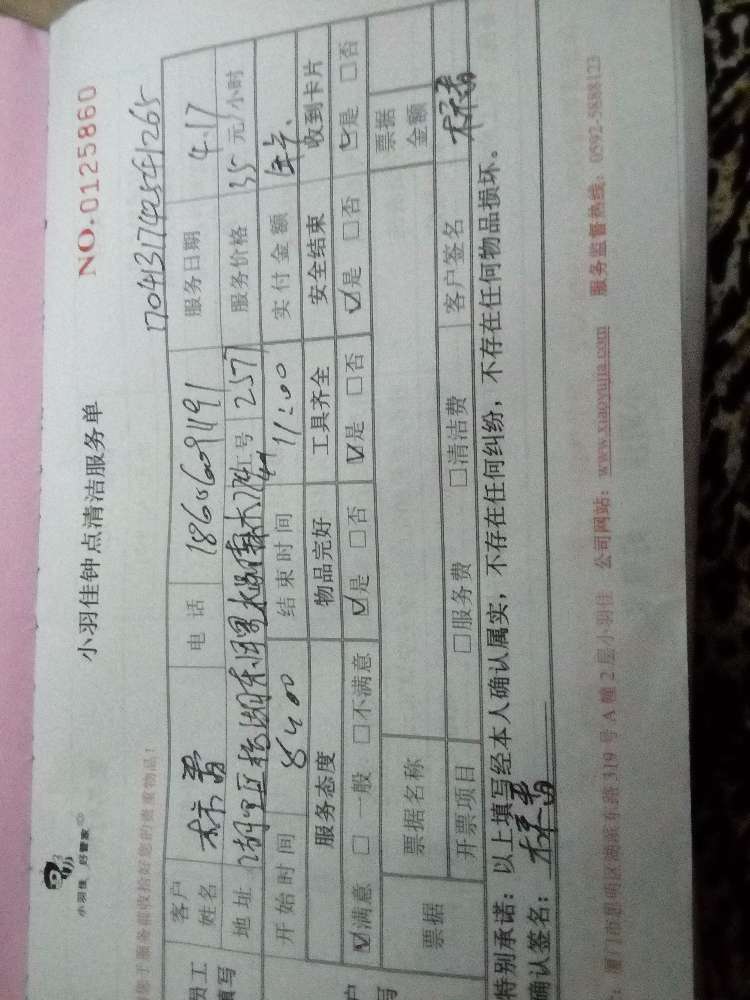 小羽佳 好管家
小羽佳钟点清洁服务单
NO.0125860
您于服务前收拾好您的贵重物品!
1704131742541265
员工
填写
客户
姓名
电 话
服务日期 4.17
地 址
号 257
服务价格 35 元/小时
开始时间 8:00
结束时间 11:00
实付金额
服务态度
物品完好
工具齐全
安全结束
收到卡片
☑满意 □一般 □不满意
☑是 □否
☑是 □否
☑是 □否
☑是 □否
票据
票据名称
票据
金额
开票项目
□服务费
□清洁费
客户签名
特别承诺:以上填写经本人确认属实,不存在任何纠纷,不存在任何物品损坏。
确认签名:
厦门市思明区湖滨东路319号A幢2层小羽佳
公司网站:www.xiaoyujia.com
服务监督热线:0592-5888123